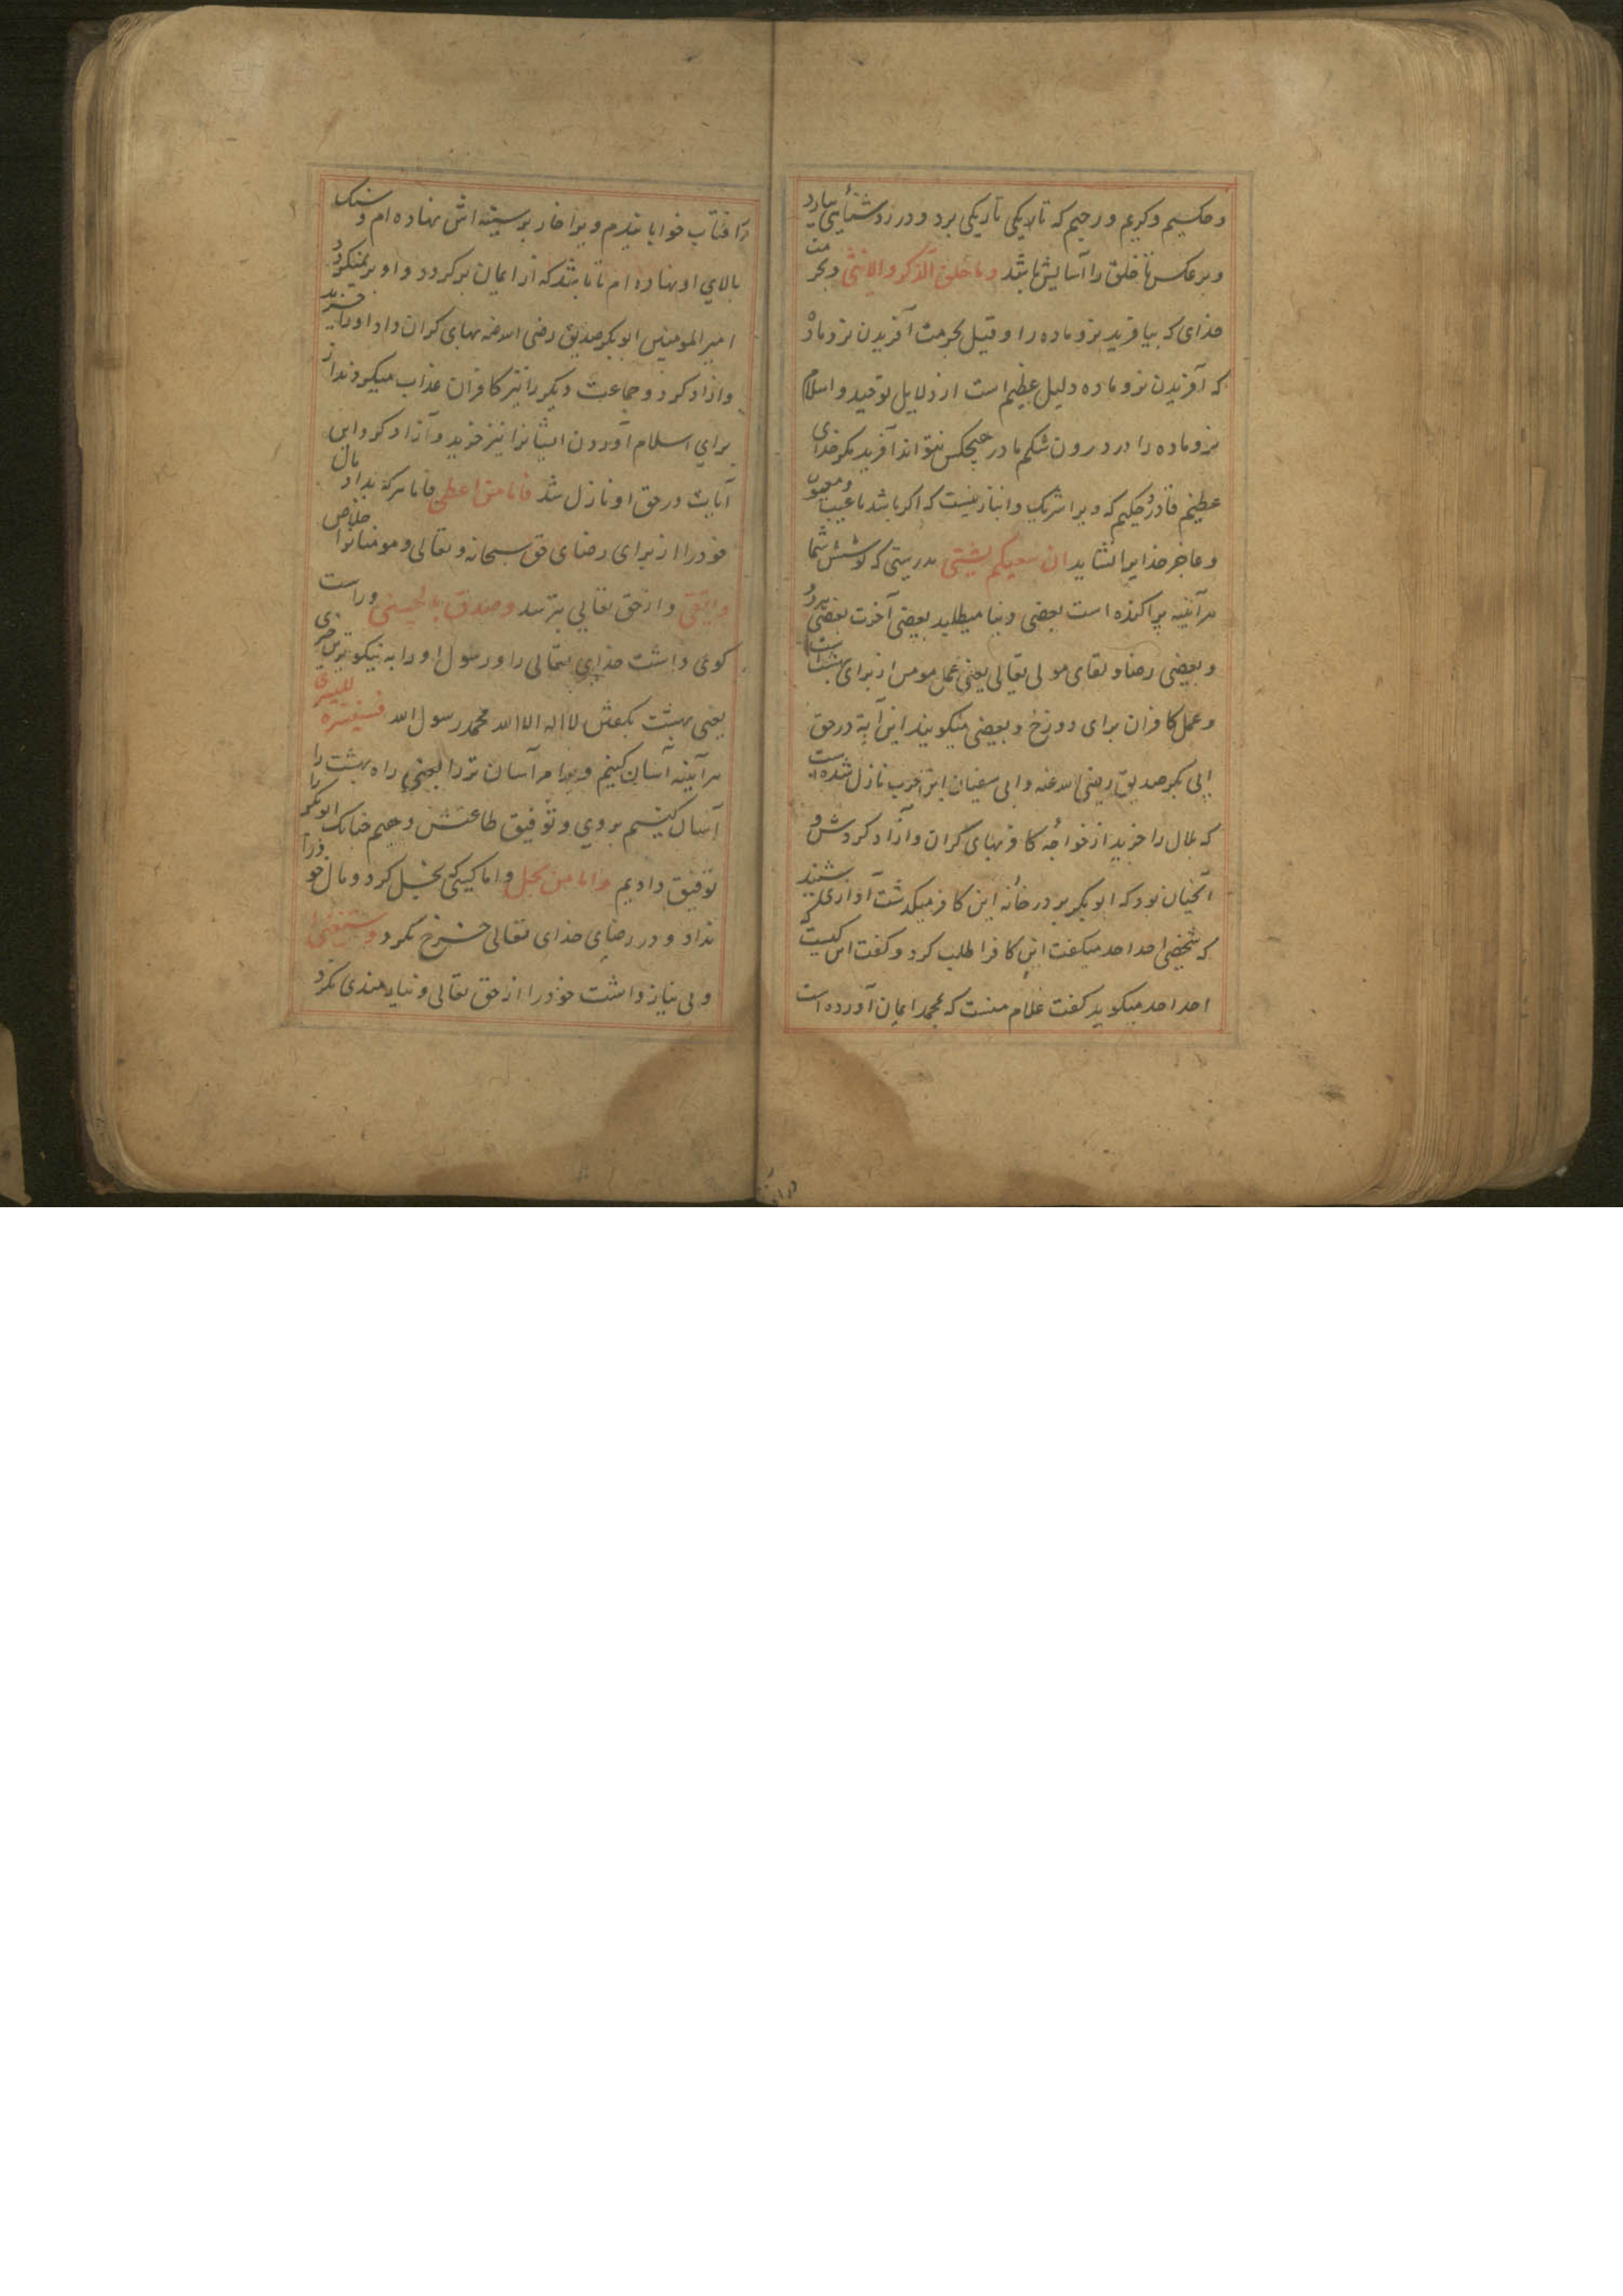 و حکیم و کریم و رحیم که تاریکی تاریکی برد و در روز روشنائی بیارد
و بر عکس تا خلق را آسایش باشد وما خلق الذکر والانثی و بحرمت
خدای که بیافرید نر و ماده را و قیل بحرمت آفریدن نر و ماده
که آفریدن نر و ماده دلیل عظیم است از دلایل توحید و اسلام
نر و ماده را در درون شکم مادر هیچکس نتواند آفرید مکر خدای
عظیم قادر حکیم که ویرا شریک و انباز نیست که اکر باشد با عیب و معیوب
و عاجز خدایرا نشاید ان سعیکم لشتی بدرستی که کوشش شما
هرآئینه پراکنده است بعضی دنیا میطلبد بعضی آخرت بعضی
و بعضی رضا و لقای مولی تعالی یعنی عمل مومن از برای بهشت است
و عمل کافران برای دوزخ و بعضی میکویند این آیة در حق
ابی بکر صدیق رضی الله عنه و ابی سفیان ابن حرب نازل شده است
که بلال را خرید از خواجه کافر بهای کران و آزاد کردش و
آنچنان بود که ابوبکر بر در خانه این کافر میکذشت آوازی شنید
که شخصی احد احد میکفت این کافر را طلب کرد و کفت این کیست که
احد احد میکوید کفت غلام منست که بمحمد ایمان آورده است
در آفتاب خوابانیدم و برا خار بر سینه اش نهاده ام و سنک
بالای او نهاده ام تا باشد که از ایمان برکردد و او برنمیکردد
امیر المومنین ابوبکر صدیق رضی الله عنه بهای کران داد او را خرید
و ازاد کرد و جماعت دیکر را نیز کافران عذاب میکردند از
برای اسلام آوردن ایشانرا نیز خرید و آزاد کرد این
آیات در حق او نازل شد فاما من اعطی فاما هر که بداد مال
خود را از برای رضای حق سبحانه و تعالی و مومنانرا خلاص
واتقی و از حق تعالی بترسد وصدق بالحسنی و راست
کوی داشت خدای تعالی را و رسول او را به نیکوترین چیزی
یعنی بهشت بکفتن لا اله الا الله محمد رسول الله فسنیسره للیسری
هرآینه آسان کنیم و برا مر آسان تر را یعنی راه بهشت را
آسان کنیم بر وی و توفیق طاعتش دهیم چنانک ابوبکر را
توفیق دادیم واما من بخل و اما کسیکه بخیل کرد و مال خود را
نداد و در رضای خدای تعالی خرج نکرد واستغنی
و بی نیاز داشت خود را از حق تعالی و نیازمندی نکرد